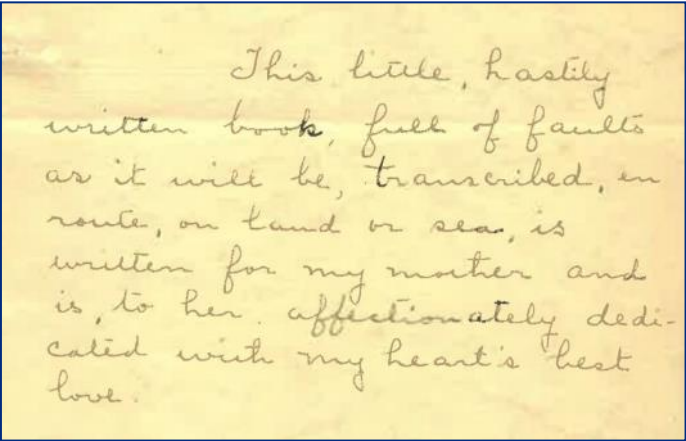 This little, hastily
written book, full of faults
as it will be, transcribed, en
route, on land or sea, is
written for my mother and
is, to her affectionately dedi-
cated with my heart's best
love.